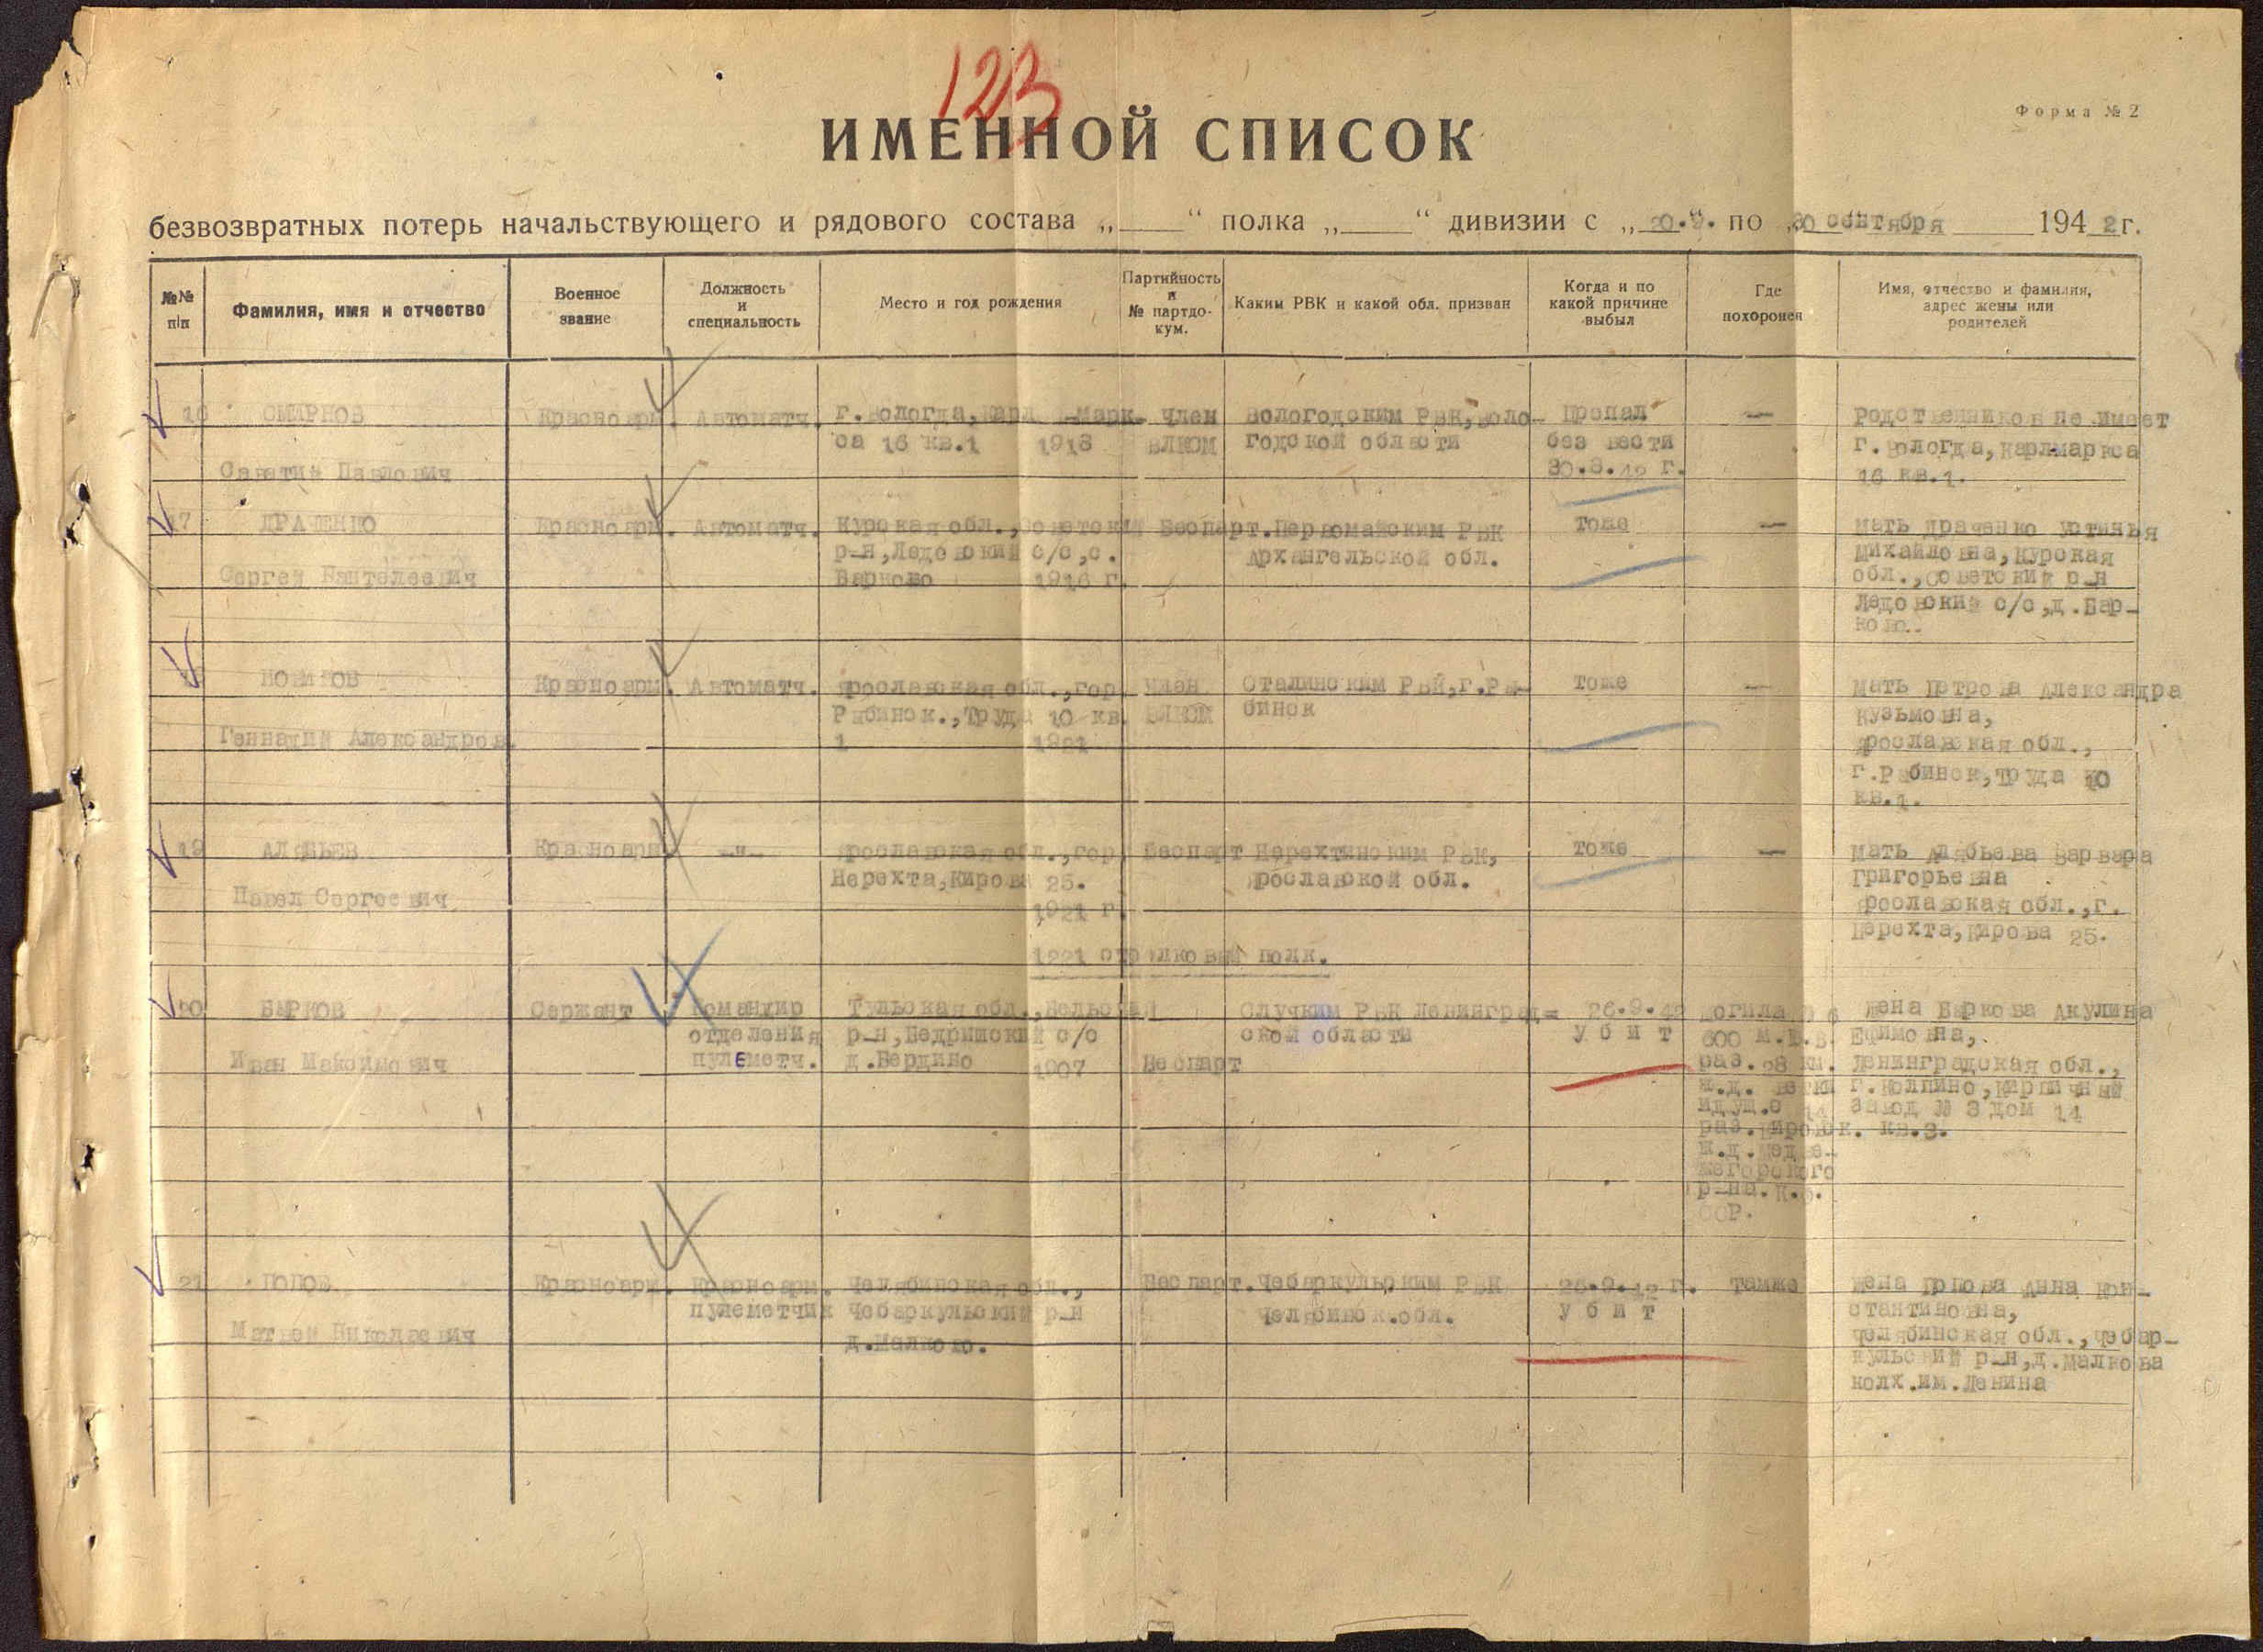 123
Форма № 2
ИМЕННОЙ СПИСОК
безвозвратных потерь начальствующего и рядового состава „____“ полка „____“ дивизии с „20.9. по 30 сентября 1942г.
№№ п/п
Фамилия, имя и отчество
Военное звание
Должность и специальность
Место и год рождения
Партийность и № партдо-кум.
Каким РВК и какой обл. призван
Когда и по какой причине выбыл
Где похоронен
Имя, отчество и фамилия, адрес жены или родителей
16 СМИРНОВ Красноарм. Автоматч. г.Вологда,Карл -Марк- член Вологодским РВК,Воло- Пропал — Родственников не имеет
са 16 кв.1 1918 ВЛКСМ годской области без вести г.Вологда,Карлмаркса
Савватий Павлович 30.9.42 г. 16 кв.1.
17 ДРАЧЕНКО Красноарм. Автоматч. Курская обл.,Советский Беспарт. Первомайским РВК тоже — Мать Драченко Устинья
р-н,Ледовский с/с,с. Архангельской обл. Михайловна,Курская
Сергей Пантелеевич Варково 1916 г. обл.,Советский р-н
Ледовский с/с,д.Вар-
ково..
НОВИКОВ Красноарм. Автоматч. Ярославская обл.,гор. член Сталинским РВК,г.Ры- тоже — Мать Петрова Александра
Рыбинск.,Труда 10 кв. ВЛКСМ бинск Кузьмовна,
Геннадий Александров. 1 1921 Ярославская обл.,
г.Рыбинск,Труда 10
кв.1.
19 АЛЯБЬЕВ Красноарм -"- Ярославская обл.,гор. Беспарт Нерехтинским РВК, тоже — Мать Алябьева Варвара
Нерехта,Кирова 25. Ярославской обл. Григорьевна
Павел Сергеевич 1921 г. Ярославская обл.,г.
Нерехта,Кирова 25.
1221 стрелковый полк.
20 БАРКОВ Сержант Командир Тульская обл., Слуцким РВК Ленинград- 26.9.42 Могила Жена Баркова Акулина
отделения р-н, с/с ской области убит 600 м. Ефимовна,
Иван Максимович пулеметч. д.Бердино 1907 Беспарт раз.28 км. Ленинградская обл.,
ж.д. ветки г.Колпино,Кирпичный
идущ.с 14 завод № 3 дом 14
раз. кв.3.
ж.д.Медве-
жегорского
р-на.К.Ф.
ССР.
21 ПОПОВ Красноарм. Красноарм. Челябинская обл., Беспарт. Чебаркульским РВК 26.9.42 г. тамже Жена Попова Анна Кон-
пулеметчик Чебаркульский р-н Челябинск.обл. убит стантиновна,
Матвей Николаевич д.Малково. Челябинская обл.,Чебар-
кульский р-н,д.Малкова
колх.им.Ленина